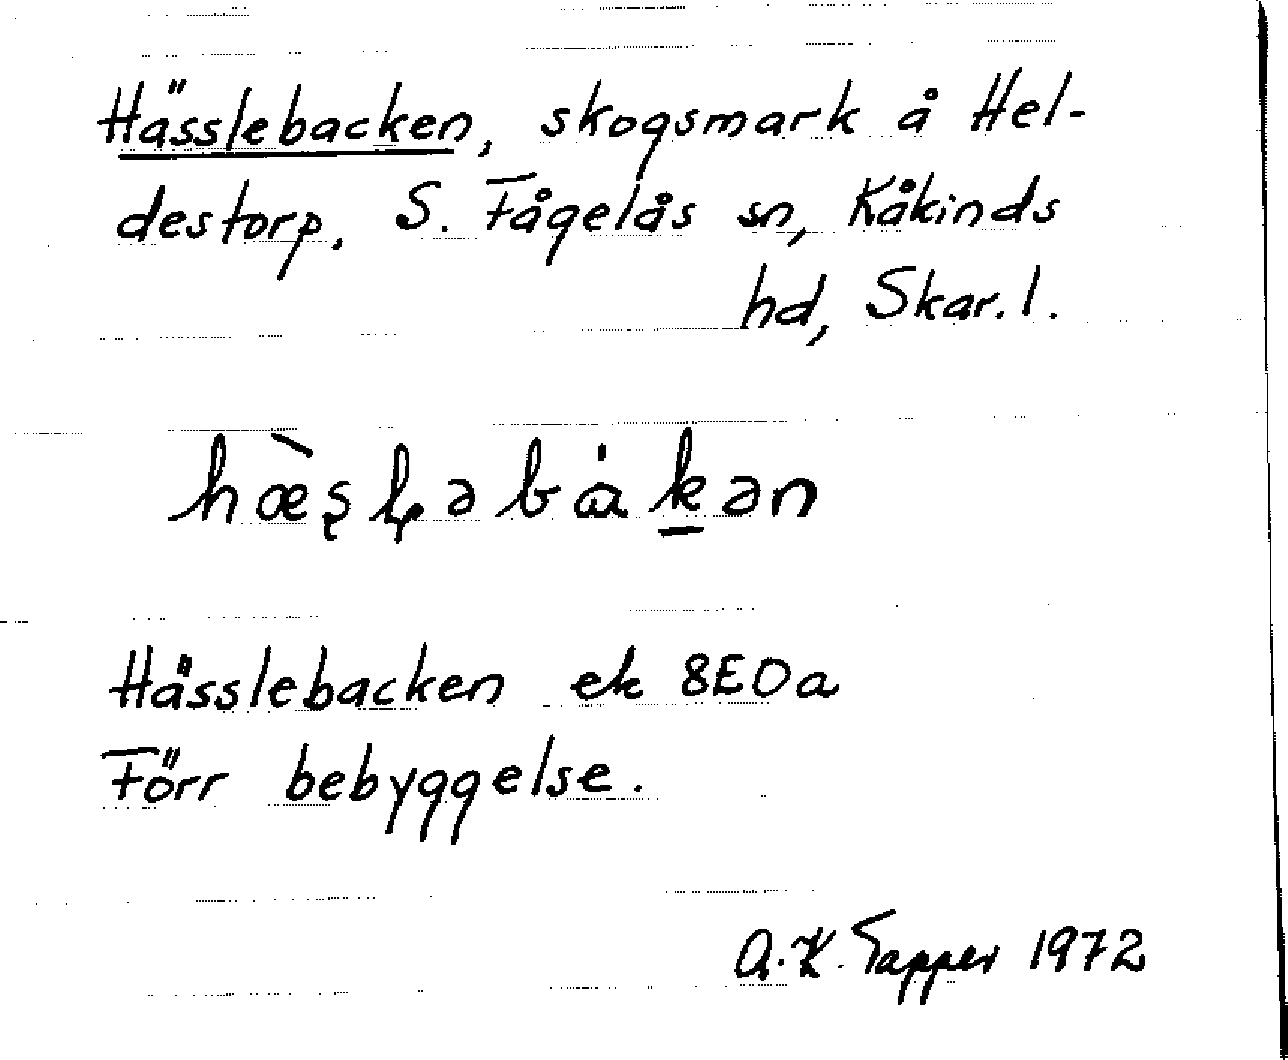 Hässlebacken, skogsmark å Hel-
destorp, S. Fågelås sn, Kåkinds
hd, Skar. l.
hæ̀ʂɭəbȧk̲ən
Hässlebacken ek 8E0a
Förr bebyggelse.
A.K. Tapper 1972